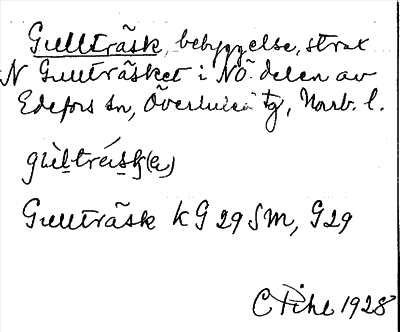 Gullträsk, bebyggelse, strax
N Gullträsket i NÖ. delen av
Edefors sn, Överluleå tg, Norrb. l.
Gullträsk k G 29 SM, G29
C Pihl 1928